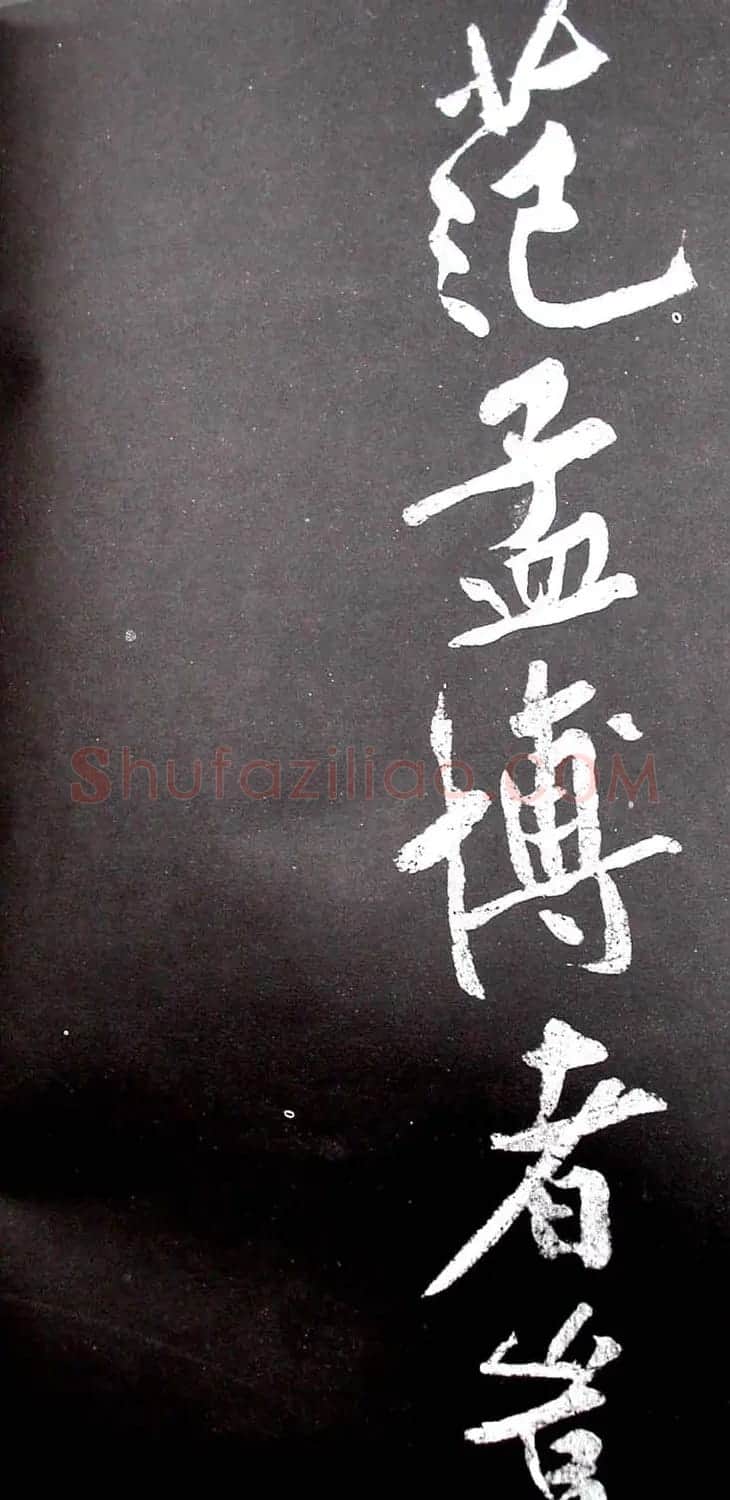 范孟博者
Shufaziliao.COM